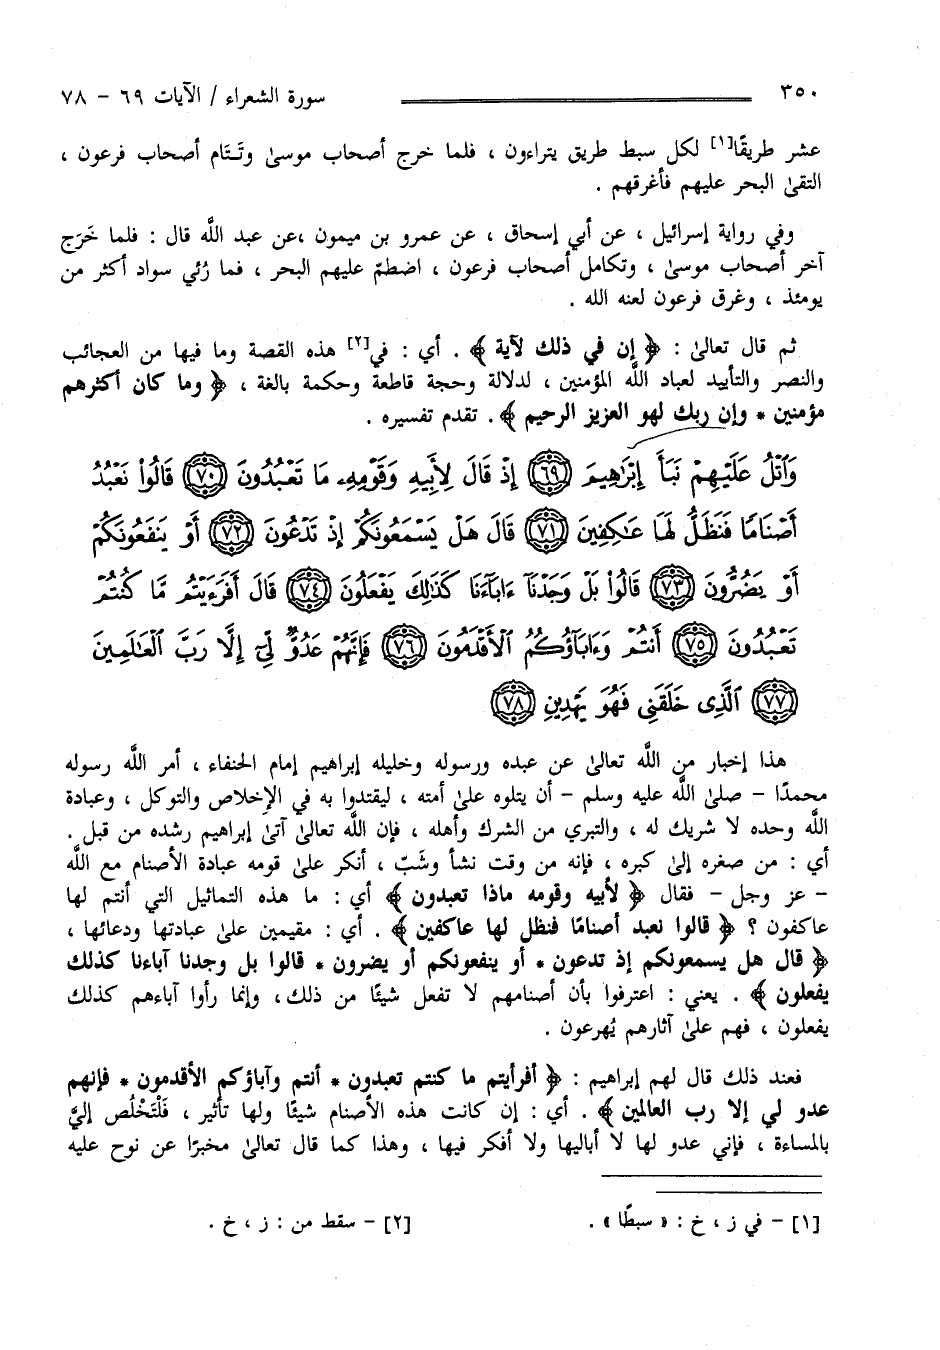 ٣٥٠ سورة الشعراء / الآيات ٦٩ - ٧٨
عشر طريقًا[١] لكل سبط طريق يتراءون ، فلما خرج أصحاب موسىٰ وتَتَام أصحاب فرعون ،
التقىٰ البحر عليهم فأغرقهم .
وفي رواية إسرائيل ، عن أبي إسحاق ، عن عمرو بن ميمون ،عن عبد اللَّه قال : فلما خَرَج
آخر أصحاب موسىٰ ، وتكامل أصحاب فرعون ، اضطمّ عليهم البحر ، فما رُئي سواد أكثر من
يومئذ ، وغرق فرعون لعنه الله .
ثم قال تعالىٰ : ﴿ إن في ذلك لآية ﴾ . أي : في[٢] هذه القصة وما فيها من العجائب
والنصر والتأييد لعباد اللَّه المؤمنين ، لدلالة وحجة قاطعة وحكمة بالغة ، ﴿ وما كان أكثرهم
مؤمنين * وإن ربك لهو العزيز الرحيم ﴾ . تقدم تفسيره .
وَٱتۡلُ عَلَيۡهِمۡ نَبَأَ إِبۡرَٰهِيمَ ٦٩ إِذۡ قَالَ لِأَبِيهِ وَقَوۡمِهِۦ مَا تَعۡبُدُونَ ٧٠ قَالُواْ نَعۡبُدُ
أَصۡنَامٗا فَنَظَلُّ لَهَا عَٰكِفِينَ ٧١ قَالَ هَلۡ يَسۡمَعُونَكُمۡ إِذۡ تَدۡعُونَ ٧٢ أَوۡ يَنفَعُونَكُمۡ
أَوۡ يَضُرُّونَ ٧٣ قَالُواْ بَلۡ وَجَدۡنَآ ءَابَآءَنَا كَذَٰلِكَ يَفۡعَلُونَ ٧٤ قَالَ أَفَرَءَيۡتُم مَّا كُنتُمۡ
تَعۡبُدُونَ ٧٥ أَنتُمۡ وَءَابَآؤُكُمُ ٱلۡأَقۡدَمُونَ ٧٦ فَإِنَّهُمۡ عَدُوّٞ لِّيٓ إِلَّا رَبَّ ٱلۡعَٰلَمِينَ
٧٧ ٱلَّذِي خَلَقَنِي فَهُوَ يَهۡدِينِ ٧٨
هذا إخبار من اللَّه تعالىٰ عن عبده ورسوله وخليله إبراهيم إمام الحنفاء ، أمر اللَّه رسوله
محمدًا - صلىٰ اللَّه عليه وسلم - أن يتلوه علىٰ أمته ، ليقتدوا به في الإخلاص والتوكل ، وعبادة
اللَّه وحده لا شريك له ، والتبري من الشرك وأهله ، فإن اللَّه تعالىٰ آتىٰ إبراهيم رشده من قبل .
أي : من صغره إلىٰ كبره ، فإنه من وقت نشأ وشَبّ ، أنكر علىٰ قومه عبادة الأصنام مع اللَّه
- عز وجل - فقال ﴿ لأبيه وقومه ماذا تعبدون ﴾ أي : ما هذه التماثيل التي أنتم لها
عاكفون ؟ ﴿ قالوا نعبد أصنامًا فنظل لها عاكفين ﴾ . أي : مقيمين علىٰ عبادتها ودعائها ،
﴿ قال هل يسمعونكم إذ تدعون * أو ينفعونكم أو يضرون * قالوا بل وجدنا آباءنا كذلك
يفعلون ﴾ . يعني : اعترفوا بأن أصنامهم لا تفعل شيئًا من ذلك، وإنما رأوا آباءهم كذلك
يفعلون ، فهم علىٰ آثارهم يُهرعون .
فعند ذلك قال لهم إبراهيم : ﴿ أفرأيتم ما كنتم تعبدون * أنتم وآباؤكم الأقدمون * فإنهم
عدو لي إلا رب العالمين ﴾ . أي : إن كانت هذه الأصنام شيئًا ولها تأثير ، فَلْتَخْلُص إليَّ
بالمساءة ، فإني عدو لها لا أباليها ولا أفكر فيها ، وهذا كما قال تعالىٰ مخبرًا عن نوح عليه
[١] - في ز ، خ : « سبطًا » . [٢] - سقط من : ز ، خ .